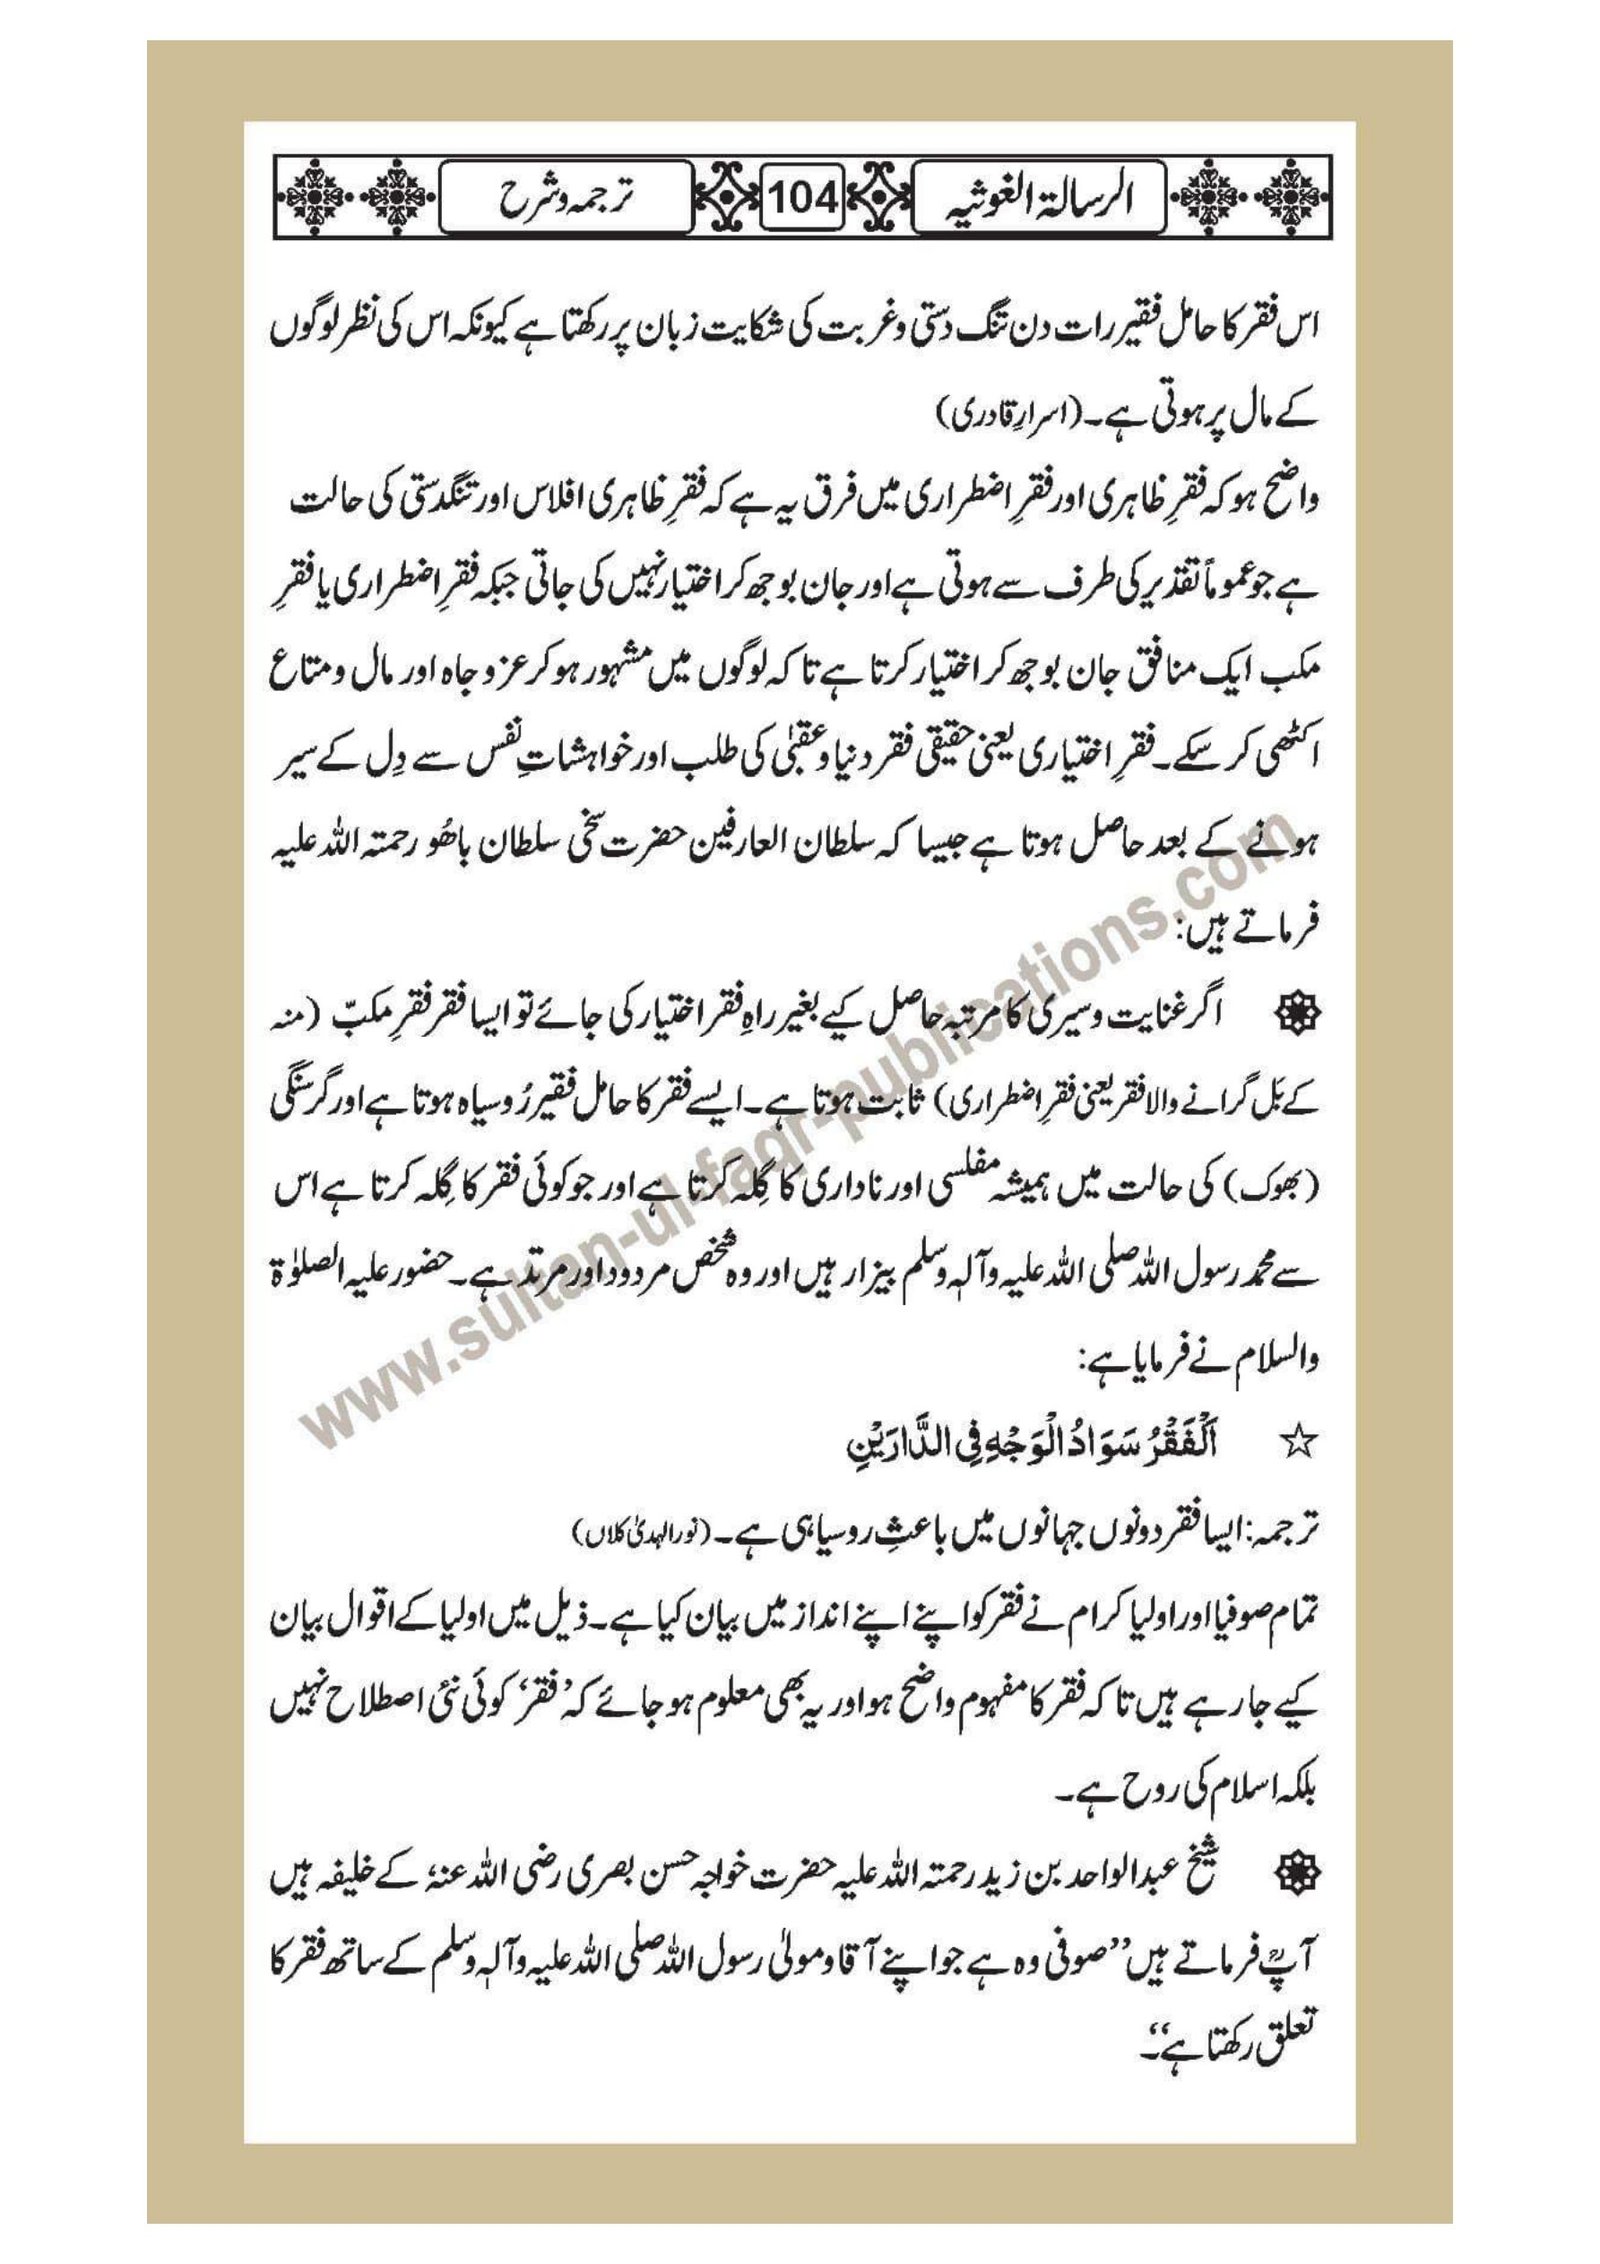 الرسالۃ الغوثیہ 104 ترجمہ و شرح
اس فقر کا حامل فقیر رات دن تنگ دستی و غربت کی شکایت زبان پر رکھتا ہے کیونکہ اس کی نظر لوگوں
کے مال پر ہوتی ہے۔ (اسرارِ قادری)
واضح ہو کہ فقرِ ظاہری اور فقرِ اضطراری میں فرق یہ ہے کہ فقرِ ظاہری افلاس اور تنگدستی کی حالت
ہے جو عموماً تقدیر کی طرف سے ہوتی ہے اور جان بوجھ کر اختیار نہیں کی جاتی جبکہ فقرِ اضطراری یا فقرِ
مکب ایک منافق جان بوجھ کر اختیار کرتا ہے تاکہ لوگوں میں مشہور ہو کر عز و جاہ اور مال و متاع
اکٹھی کر سکے۔ فقرِ اختیاری یعنی حقیقی فقر دنیا و عقبٰی کی طلب اور خواہشاتِ نفس سے دِل کے سیر
ہونے کے بعد حاصل ہوتا ہے جیسا کہ سلطان العارفین حضرت سخی سلطان باھُو رحمتہ اللہ علیہ
فرماتے ہیں:
اگر غنایت و سیری کا مرتبہ حاصل کیے بغیر راہِ فقر اختیار کی جائے تو ایسا فقر فقرِ مکبّ (منہ
کے بَل گرانے والا فقر یعنی فقرِ اضطراری) ثابت ہوتا ہے۔ ایسے فقر کا حامل فقیر رُوسیاہ ہوتا ہے اور گرسنگی
(بھوک) کی حالت میں ہمیشہ مفلسی اور ناداری کا گِلہ کرتا ہے اور جو کوئی فقر کا گِلہ کرتا ہے اس
سے محمد رسول اللہ صلی اللہ علیہ وآلہٖ وسلم بیزار ہیں اور وہ شخص مردود اور مرتد ہے۔ حضور علیہ الصلوٰۃ
والسلام نے فرمایا ہے:
☆ اَلْفَقْرُ سَوَادُ الْوَجْہِ فِی الدَّارَیْنِ
ترجمہ: ایسا فقر دونوں جہانوں میں باعثِ روسیاہی ہے۔ (نور الہدیٰ کلاں)
تمام صوفیا اور اولیا کرام نے فقر کو اپنے اپنے انداز میں بیان کیا ہے۔ ذیل میں اولیا کے اقوال بیان
کیے جا رہے ہیں تاکہ فقر کا مفہوم واضح ہو اور یہ بھی معلوم ہو جائے کہ ’فقر‘ کوئی نئی اصطلاح نہیں
بلکہ اسلام کی روح ہے۔
شیخ عبدالواحد بن زید رحمتہ اللہ علیہ حضرت خواجہ حسن بصری رضی اللہ عنہٗ کے خلیفہ ہیں
آپؒ فرماتے ہیں ’’صوفی وہ ہے جو اپنے آقا و مولیٰ رسول اللہ صلی اللہ علیہ وآلہٖ وسلم کے ساتھ فقر کا
تعلق رکھتا ہے‘‘۔
www.sultan-ul-faqr-publications.com